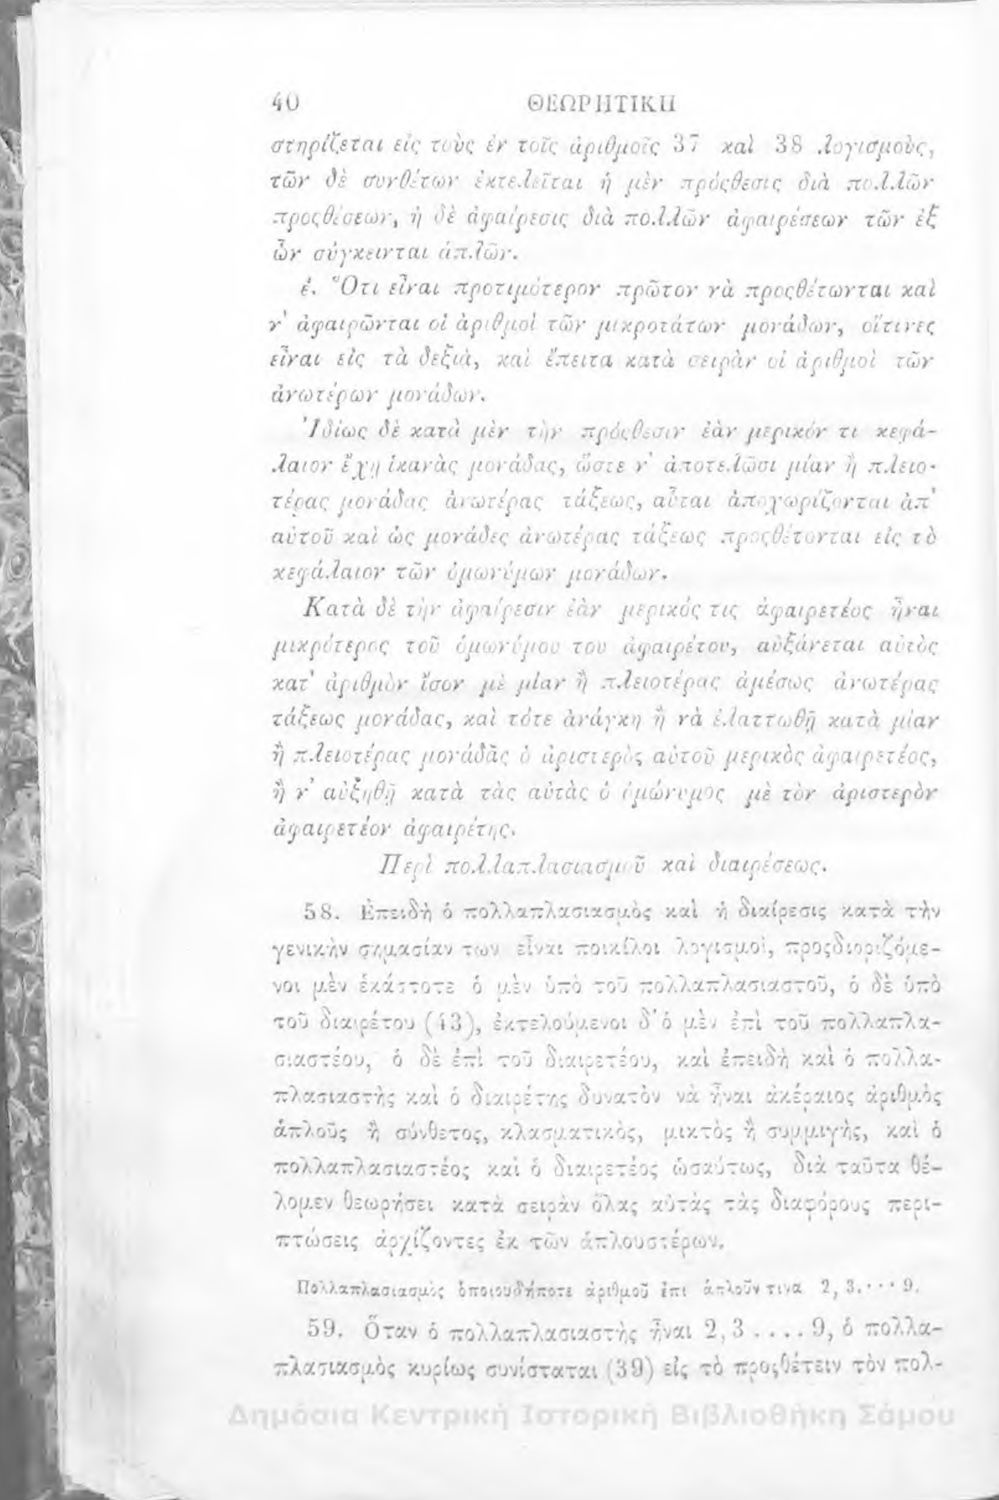 40 ΘΕΩΡΗΤΙΚΗ
στηρίζεται εἰς τοὺς ἐν τοῖς ἀριθμοῖς 37 καὶ 38 λογισμοὺς,
τῶν δὲ συνθέτων ἐκτελεῖται ἡ μὲν πρόςθεσις διὰ πολλῶν
προςθέσεων, ἡ δὲ ἀφαίρεσις διὰ πολλῶν ἀφαιρέσεων τῶν ἐξ
ὧν σύγκεινται ἁπλῶν.
έ. Ὅτι εἶναι προτιμότερον πρῶτον νὰ προςθέτωνται καὶ
ν' ἀφαιρῶνται οἱ ἀριθμοὶ τῶν μικροτάτων μονάδων, οἵτινες
εἶναι εἰς τὰ δεξιὰ, καὶ ἔπειτα κατὰ σειρὰν οἱ ἀριθμοὶ τῶν
ἀνωτέρων μονάδων.
Ἰδίως δὲ κατὰ μὲν τὴν πρόςθεσιν ἐὰν μερικόν τι κεφά-
λαιον ἔχῃ ἱκανὰς μονάδας, ὥστε ν' ἀποτελῶσι μίαν ἢ πλειο-
τέρας μονάδας ἀνωτέρας τάξεως, αὗται ἀποχωρίζονται ἀπ'
αὐτοῦ καὶ ὡς μονάδες ἀνωτέρας τάξεως προςθέτονται εἰς τὸ
κεφάλαιον τῶν ὁμωνύμων μονάδων.
Κατὰ δὲ τὴν ἀφαίρεσιν ἐὰν μερικός τις ἀφαιρετέος ἦναι
μικρότερος τοῦ ὁμωνύμου του ἀφαιρέτου, αὐξάνεται αὐτὸς
κατ' ἀριθμὸν ἴσον μὲ μίαν ἢ πλειοτέρας ἀμέσως ἀνωτέρας
τάξεως μονάδας, καὶ τότε ἀνάγκη ἢ νὰ ἐλαττωθῇ κατὰ μίαν
ἢ πλειοτέρας μονάδας ὁ ἀριστερὸς αὐτοῦ μερικὸς ἀφαιρετέος,
ἢ ν' αὐξηθῇ κατὰ τὰς αὐτὰς ὁ ὁμώνυμος μὲ τὸν ἀριστερὸν
ἀφαιρετέον ἀφαιρέτης.
Περὶ πολλαπλασιασμοῦ καὶ διαιρέσεως.
58. Ἐπειδὴ ὁ πολλαπλασιασμὸς καὶ ἡ διαίρεσις κατὰ τὴν
γενικὴν σημασίαν των εἶναι ποικίλοι λογισμοὶ, προςδιοριζόμε-
νοι μὲν ἑκάστοτε ὁ μὲν ὑπὸ τοῦ πολλαπλασιαστοῦ, ὁ δὲ ὑπὸ
τοῦ διαιρέτου (43), ἐκτελούμενοι δ' ὁ μὲν ἐπὶ τοῦ πολλαπλα-
σιαστέου, ὁ δὲ ἐπὶ τοῦ διαιρετέου, καὶ ἐπειδὴ καὶ ὁ πολλα-
πλασιαστὴς καὶ ὁ διαιρέτης δυνατὸν νὰ ἦναι ἀκέραιος ἀριθμὸς
ἁπλοῦς ἢ σύνθετος, κλασματικὸς, μικτὸς ἢ συμμιγὴς, καὶ ὁ
πολλαπλασιαστέος καὶ ὁ διαιρετέος ὡσαύτως, διὰ ταῦτα θέ-
λομεν θεωρήσει κατὰ σειρὰν ὅλας αὐτὰς τὰς διαφόρους περι-
πτώσεις ἀρχίζοντες ἐκ τῶν ἁπλουστέρων.
Πολλαπλασιασμὸς ὁποιουδήποτε ἀριθμοῦ ἐπι ἁπλοῦν τινα 2, 3.··· 9.
59. Ὅταν ὁ πολλαπλασιαστὴς ἦναι 2, 3 .... 9, ὁ πολλα-
πλασιασμὸς κυρίως συνίσταται (39) εἰς τὸ προςθέτειν τὸν πολ-
Δημόσια Κεντρική Ιστορική Βιβλιοθήκη Σάμου